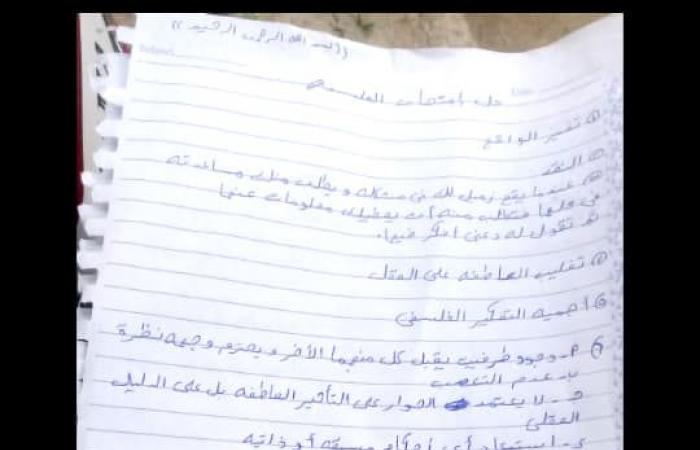 ((بسم الله الرحمن الرحيم))
حل امتحان الفلسفة
① تفسير الواقع
② النقد
③ عندما يقع زميل لك فى مشكله ويطلب منك مساعدته
فى حلها فتطلب منه أن يعطيك معلومات عنها
ثم تقول له دعنى افكر فيها.
④ تغليب العاطفه على العقل
⑤ اهميه التفكير الفلسفى
⑥ أ- وجود طرفين يقبل كل منهما الأخر ويحترم وجهه نظرة
ب- عدم التعصب
ج- لا يعتمد الحوار على التأثير العاطفه بل على الدليل
العقلى
د- استبعاد أى أحكام مسبقه أو ذاتيه